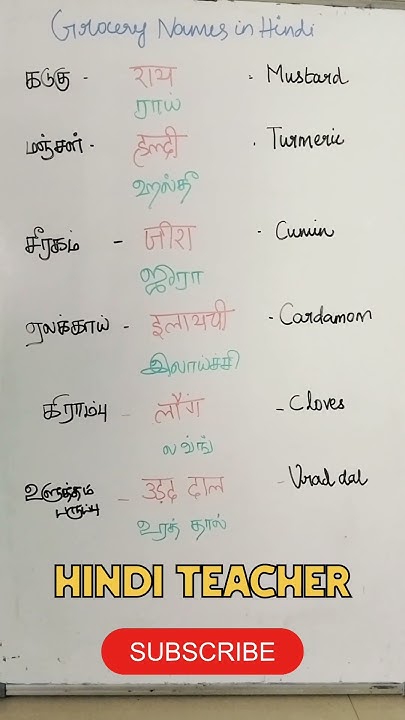 Grocery Names in Hindi
கடுகு - राय : Mustard
ராய்
மஞ்சள் - हल्दी . Turmeric
ஹல்தீ
சீரகம் - जीरा - Cumin
ஜீரா
ஏலக்காய் - इलायची - Cardamom
இலாய்ச்சி
கிராம்பு - लौंग - Cloves
லவ்ங்
உளுத்தம் பருப்பு - उड़द दाल - Urad dal
உரத் தால்
HINDI TEACHER
SUBSCRIBE